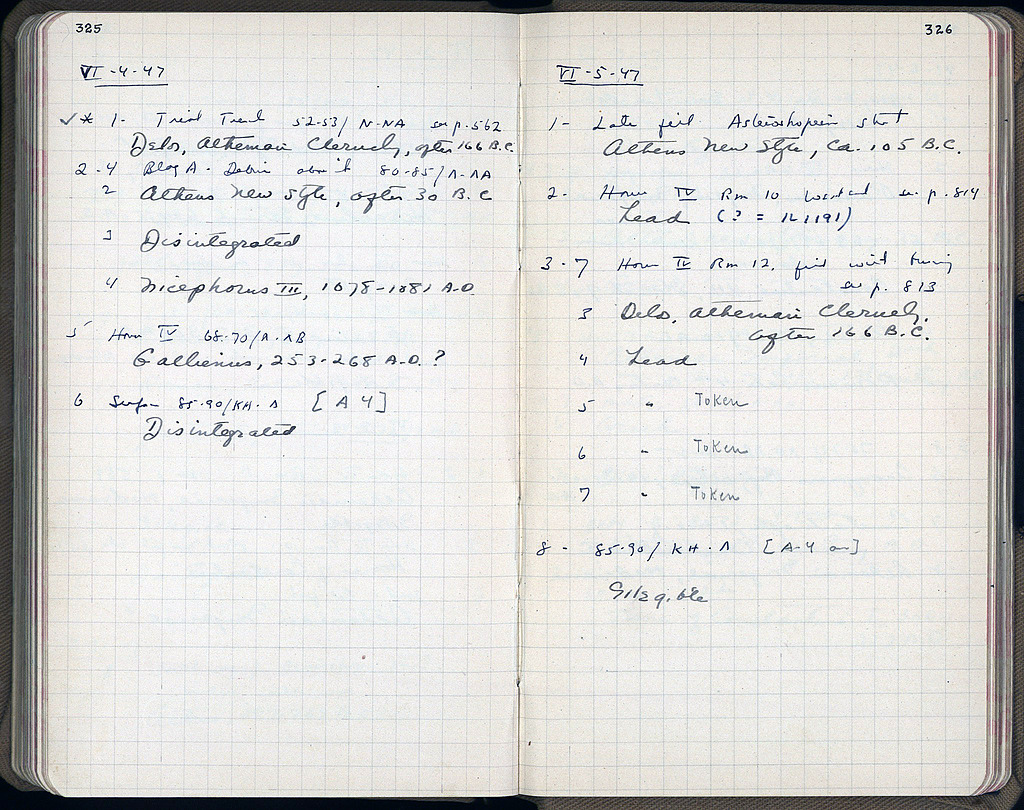 325
VI-4-47
✓ * 1- Trial Trench 52-53/N-NA see p. 562
Delos, Athenian Cleruchy, after 166 B.C.
2-4 Bldg A. Debris about 80-85/Λ-ΛA
2 Athens New Style, after 30 B.C
3 Disintegrated
4 Nicephorus III, 1078-1081 A.D.
5 House IV 68-70/Λ-ΛB
Gallienus, 253-268 A.D.?
6 Surface 85-90/KH-Λ [A 4]
Disintegrated
326
VI-5-47
1- Late fill street
Athens New Style, ca. 105 B.C.
2. House IV Rm 10 see p. 814
Lead (? = IL 1191)
3-7 House IV Rm 12.
see p. 813
3 Delos, Athenian Cleruchy.
after 166 B.C.
4 Lead
5 " Token
6 " Token
7 " Token
8 - 85-90/KH-Λ [A-4]
Illegible